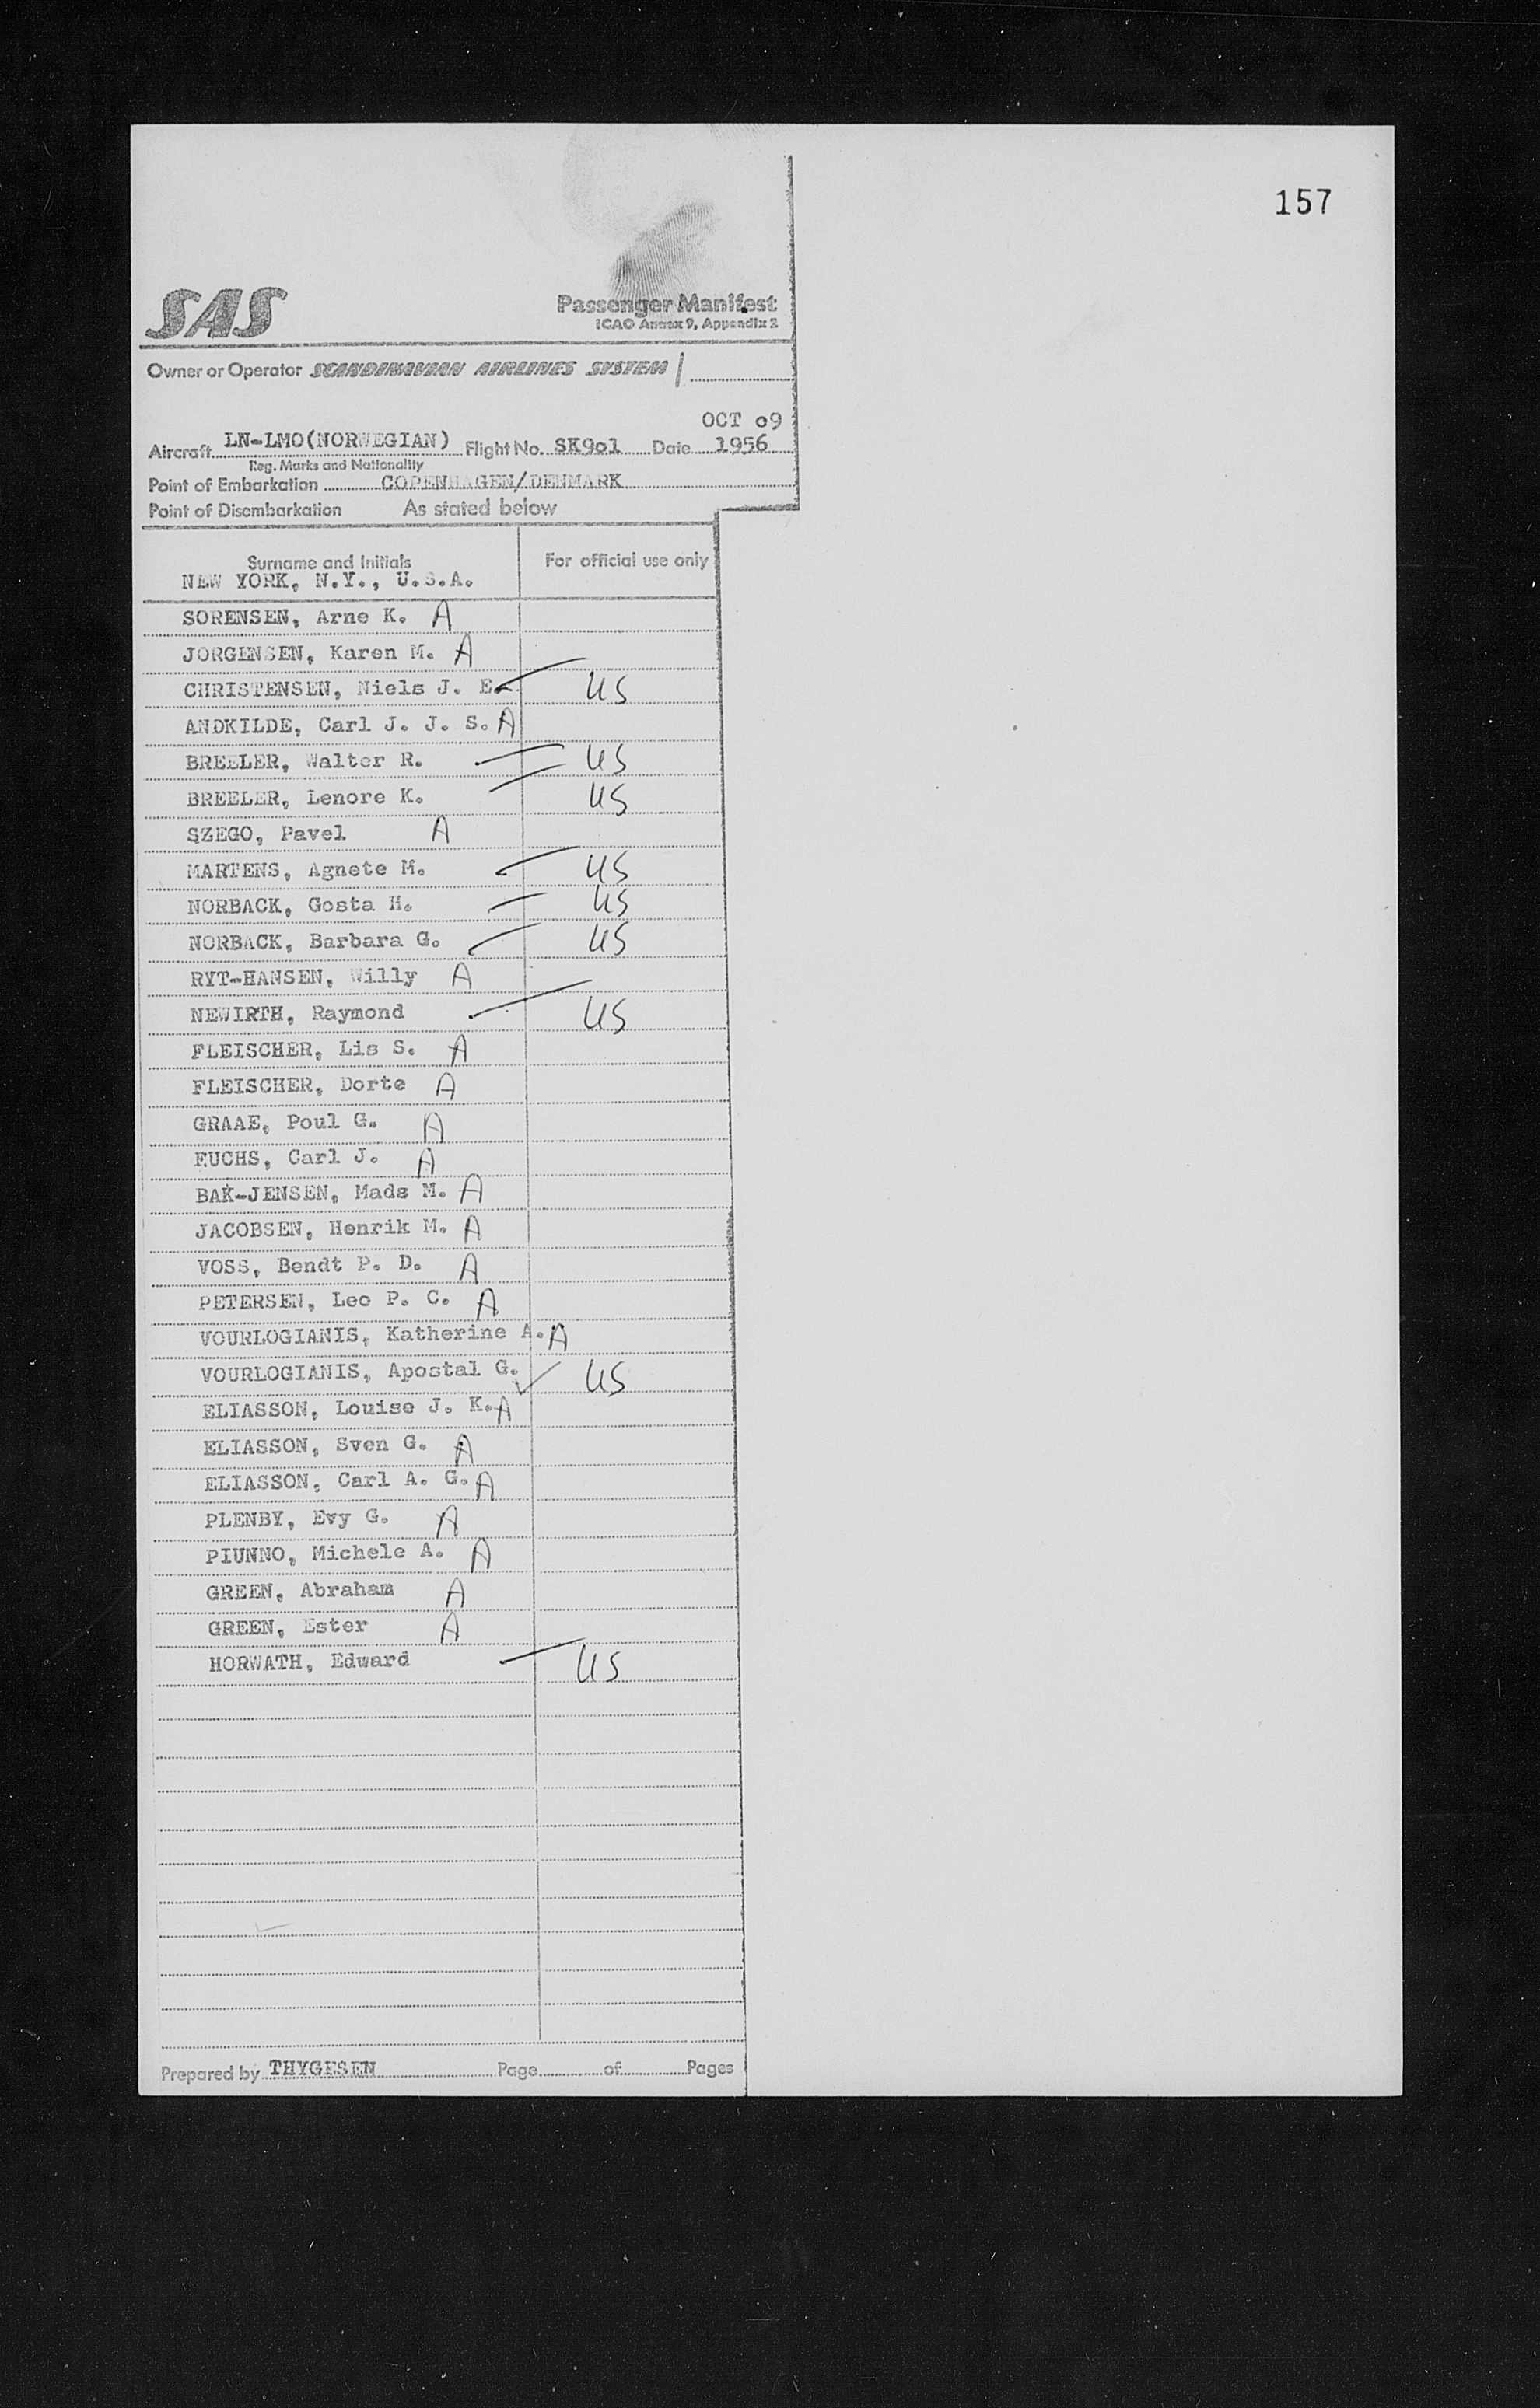 157
SAS
Passenger Manifest
ICAO Annex 9, Appendix 2
Owner or Operator SCANDINAVIAN AIRLINES SYSTEM
OCT 09
Aircraft LN-LMO(NORWEGIAN) Flight No. SK901 Date 1956
Reg. Marks and Nationality
Point of Embarkation COPENHAGEN/DENMARK
Point of Disembarkation As stated below
Surname and Initials For official use only
NEW YORK, N.Y., U.S.A.
SORENSEN, Arne K. A
JORGENSEN, Karen M. A
CHRISTENSEN, Niels J. E. US
ANDKILDE, Carl J. J. S. A
BREELER, Walter R. US
BREELER, Lenore K. US
SZEGO, Pavel A
MARTENS, Agnete M. US
NORBACK, Gosta H. US
NORBACK, Barbara G. US
RYT-HANSEN, Willy A
NEWIRTH, Raymond US
FLEISCHER, Lis S. A
FLEISCHER, Dorte A
GRAAE, Poul G. A
FUCHS, Carl J. A
BAK-JENSEN, Mads M. A
JACOBSEN, Henrik M. A
VOSS, Bendt P. D. A
PETERSEN, Leo P. C. A
VOURLOGIANIS, Katherine A. A
VOURLOGIANIS, Apostal G. ✓ US
ELIASSON, Louise J. K. A
ELIASSON, Sven G. A
ELIASSON, Carl A. G. A
PLENBY, Evy G. A
PIUNNO, Michele A. A
GREEN, Abraham A
GREEN, Ester A
HORWATH, Edward US
Prepared by THYGESEN Page of Pages